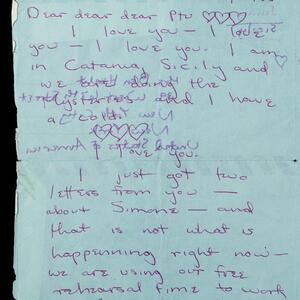 Dear dear dear Ptr
I love you — I love
you — I love you. I am
in Catania, Sicily and
we are doing the
Mysteries and I have
a cold.
I love you.
I just got two
letters from you —
about Simone — and
that is not what is
happenning right now —
we are using our free
rehearsal time to work